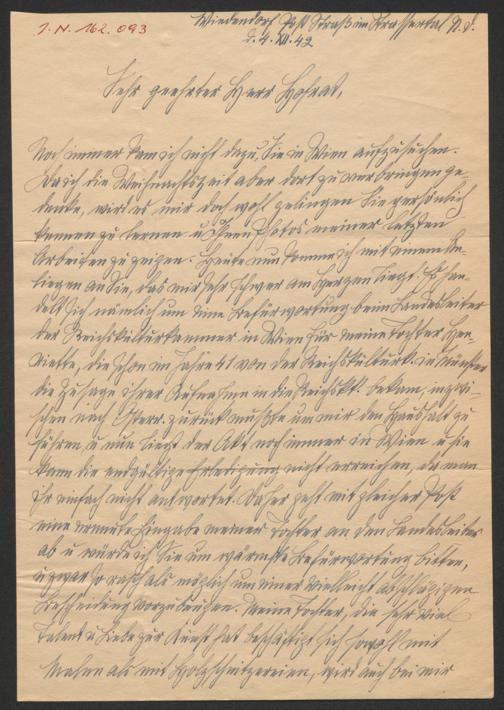 J. N. 162.093
Wiedendorf Post Straß im Strassertal N. d.
d. 4. XII. 42
Sehr geehrter Herr Hofrat,
Noch immer kam ich nicht dazu, Sie in Wien aufzusuchen.
Da ich die Weihnachtszeit aber dort zu verbringen ge-
denke, wird es mir doch wohl gelingen Sie persönlich
kennen zu lernen u. Ihnen Photos meiner letzten
Arbeiten zu zeigen. Heute nun komme ich mit einem An-
liegen an Sie, das mir sehr schwer am Herzen liegt. Es han-
delt sich nämlich um eine Befürwortung beim Landesleiter
der Reichskulturkammer in Wien für meine Tochter Hen-
riette, die schon im Jahre 41 von der Reichskulturk. in München
die Zusage ihrer Aufnahme in die Reichskk. bekam, inzwi-
schen nach Österr. zurück mußte um mir den Haushalt zu
führen u. nun liegt der Akt noch immer in Wien u. sie
kann die endgültige Erledigung nicht erreichen, da man
ihr einfach nicht antwortet. Daher geht mit gleicher Post
eine erneute Eingabe meiner Tochter an den Landesleiter
ab u. würde ich Sie um wärmste Befürwortung bitten,
u. zwar so rasch als möglich um einer vielleicht abschlägigen
Bescheidung vorzubeugen. Meine Tochter, die sehr viel
Talent u. Liebe zur Kunst hat beschäftigt sich sowohl mit
Malen als mit Holzschnitzereien, wird auch bei mir